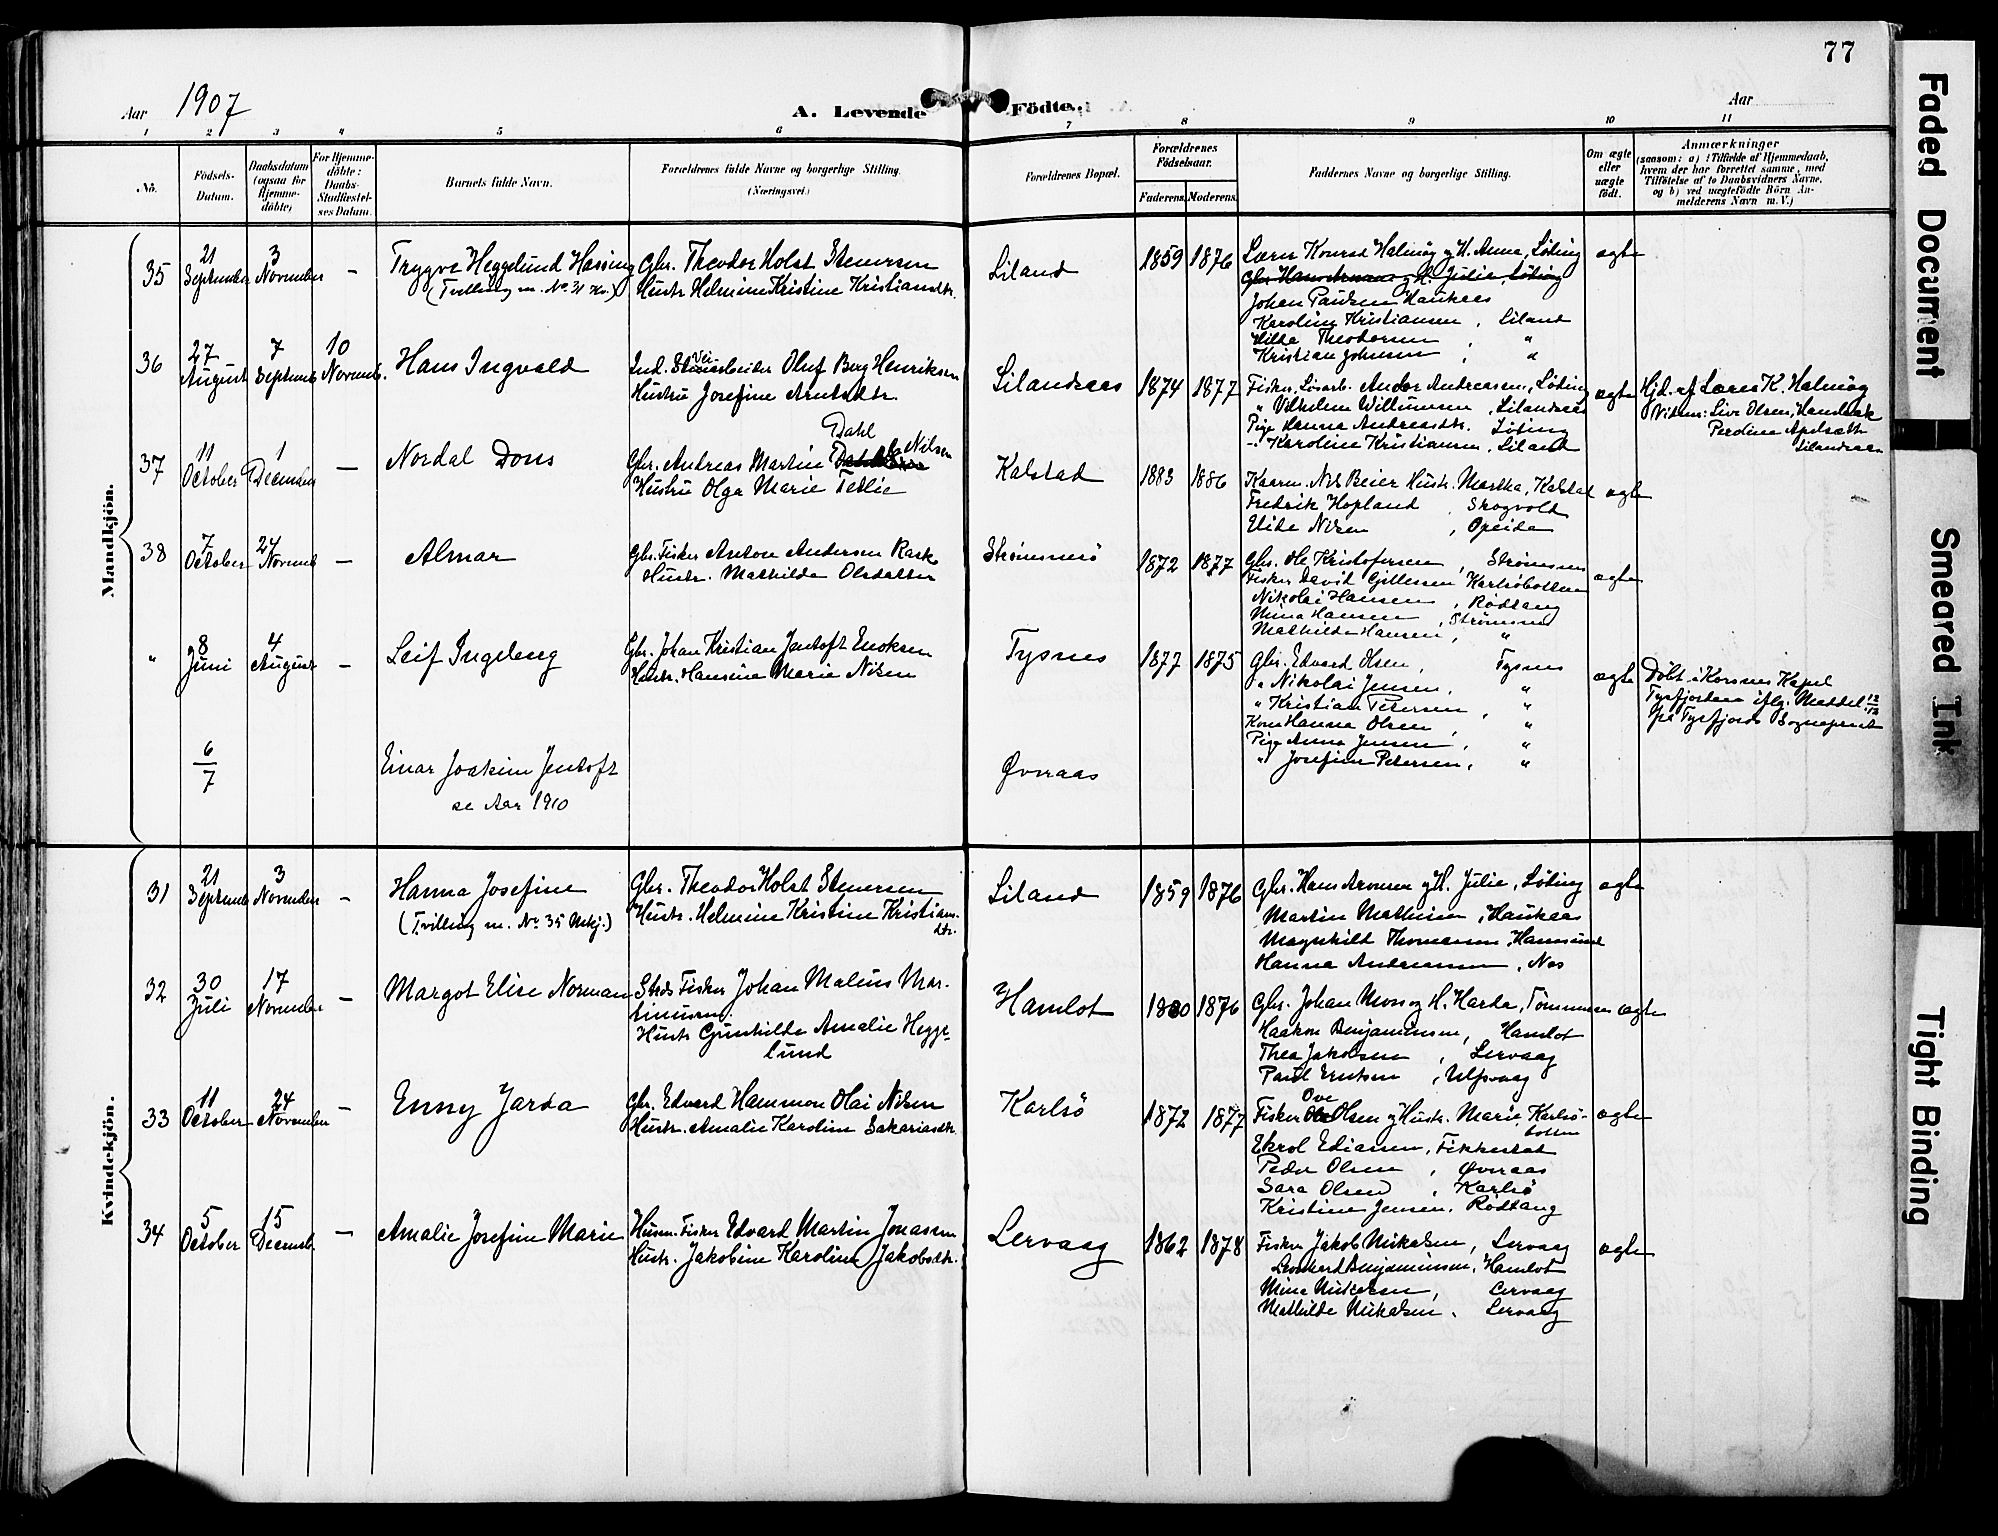 77
Aar 1907
A. Levende Födte.
Aar
1 2 3 4 5 6 7 8 9 10 11
No.
Födsels-Datum.
Daabsdatum (ogsaa for Hjemme-döbte)
For Hjemme-döbte: Daabs-Stadfæstel-ses Datum.
Barnets fulde Navn.
Forældrenes fulde Navne og borgerlige Stilling.
(Næringsvei.)
Forældrenes Bopæl.
Forældrenes Födselsaar.
Faderens. Moderens.
Faddernes Navne og borgerlige Stilling.
Om ægte eller uægte födt.
Anmærkninger
(saasom: a) i Tilfælde af Hjemmedaab, hvem der har forrettet samme, med Tilföielse af to Daabsvidners Navne, og b) ved uægtefödte Börn An-melderens Navn m. V.)
Mandkjön.
35 21 September 3 November - Trygve Heggelund Hassing
(Tvilling m. No 31 Kv.)
Gbr. Theodor Holst Stenersen
Hustr. Helmine Kristine Kristiandtr.
Liland 1859 1876
Lærer Konrad Halmøy og H. Anna, Løding
Gbr. Hans Aronsen og H. Julie, Løding
Johan Paulsen Haukaas
Karoline Kristiansen, Liland
Hilda Theodorsen, "
Kristian Johnsen, "
ægte
36 27 August 7 Septemb 10 Novemb. Hans Ingvald
Ind. Veiarbeider Oluf Berg Henriksen
Hustru Josefine Arntsdtr.
Lilandsaas 1874 1877
Fisker, Løsarb. Andor Andreasen, Løding
" Vilhelm Willumsen, Lilandsaas
Pige Hanna Andreasdtr. Løding
- Karoline Kristiansen, Liland
ægte
Hjd. af Lærer K. Halmøy
Vidner: Live Olsen, Handbak
Perdine Apelsæth
Lilandsaas
37 11 October 1 December - Nordal Dons
Gbr. Andreas Martin Dahl Nilsen
Hustru Olga Marie Tetlie
Kalstad 1883 1886
Kaarm. Nils Beier Hustr. Martha, Kalstad
Fredrik Hopland, Skogvold
Elide Nilsen, Opeide
ægte
38 7 October 24 Novemb - Almar
Gbr. Fisker Anton Andersen Rask
Hustr. Mathilde Olsdatter
Strømsnes 1872 1877
Gbr. Ole Kristofersen, Strømsnes
Fisker David Gjillesen Karlsöbotten
Nikolai Hansen, Rødtang
Mina Hansen, Strømsnes
Mathilde Hansen, "
ægte
" 8 Juni 4 August - Leif Ingeberg
Gbr. Johan Kristian Jentoft Enoksen
Hustr. Hansine Marie Nilsen
Tysnes 1877 1875
Gbr. Edvard Olsen, Tysnes
" Nikolai Jensen, "
" Kristian Petersen, "
Kone Hanna Olsen, "
Pige Anna Jensen, "
" Josefine Petersen, "
ægte
Döbt i Korsnes Kapel
Tysfjorden iflg. Meddel. 12/12
fra Tysfjords Sogneprest
6/7 Einar Joakim Jentoft
se Aar 1910
Øvraas
Kvindekjön.
31 21 Septemb 3 November - Hanna Josefine
(Tvilling m. No 35 Mkj.)
Gbr. Theodor Holst Stenersen
Hustr. Helmine Kristine Kristians-
dtr.
Liland 1859 1876
Gbr. Hans Aronsen og H. Julie, Løding
Martin Mathisen, Haukaas
Magnhild Thomassen, Hamsund
Hanna Andreassen, Nes
ægte
32 30 Juli 17 November - Margot Elise Norman
Strds. Fisker Johan Malius Mar-
tinusen.
Hustr. Gunhilda Amalie Hegge-
lund
Hamlot 1880 1876
Gbr. Johan Moss og H. Harda, Tømmernes
Haakon Benjaminsen, Hamlot
Thea Jakobsen, Lervaag
Paul Erntsen, Ulfsvaag
ægte
33 11 October 24 November - Enny Jarda
Gbr. Edvard Hammon Olai Nilsen
Hustr. Amalie Karoline Sakariasdtr.
Karlsö 1872 1877
Fisker Ove Olsen og Hustr. Marie, Karlsö-
botten
Ekrol Ediassen, Fikkestad
Peder Olsen, Øvraas
Sara Olsen, Karlsö
Kristine Jensen, Rødtang
ægte
34 5 October 15 Decemb. - Amalie Josefine Marie
Husm. Fisker Edvard Martin Jonassen
Hustr. Jakobine Karoline Jakobsdtr.
Lervaag 1862 1878
Fisker Jakob Mikalsen, Lervaag
Leonhard Benjaminsen, Hamlot
Mina Mikalsen, Lervaag
Mathilde Mikalsen, Lervaag
ægte
Faded Document
Smeared Ink
Tight Binding